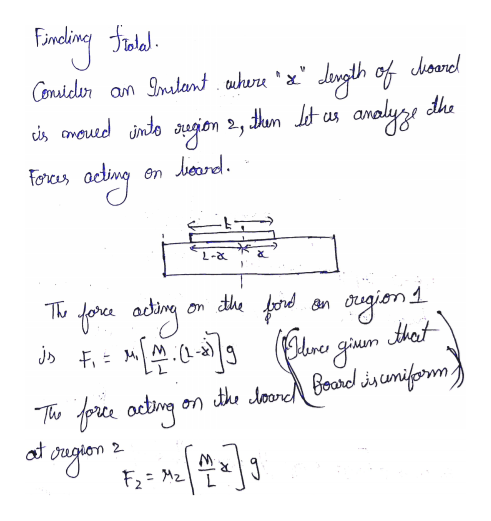 Finding fTotal.
Consider an Instant where "x" length of board
is moved into region 2, then let us analyze the
Forces acting on board.
L
L-x x
The force acting on the ford on region 1
is F₁ = μ₁[M/L·(L-x)]g (Hence given that
Board is uniform)
The force acting on the board
at region 2
F₂ = μ₂[M/L x]g